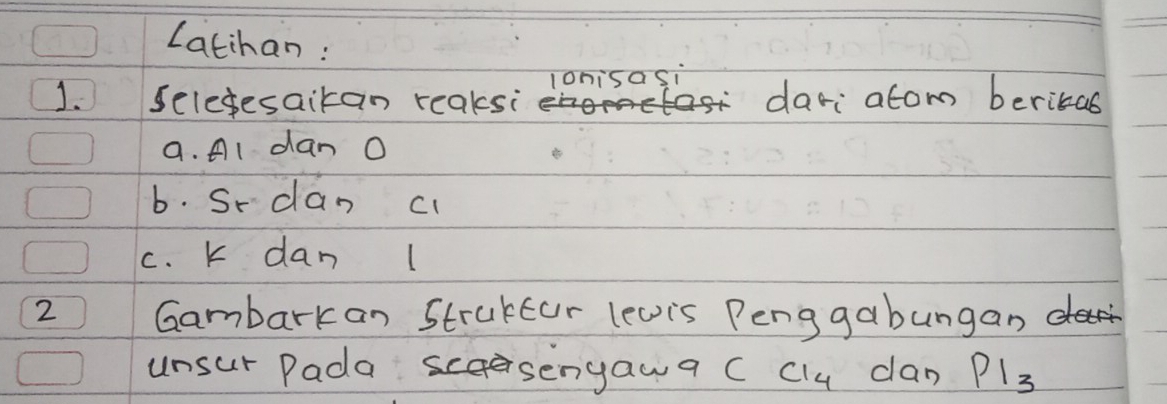 Latihan :
1. Seles̶esaikan reaksi ionisasi dari atom berikas
a. Al dan O
b. Sr dan Cl
c. K dan I
2 Gambarkan Struktur lewis Penggabungan dari
unsur Pada senyawa C Cl4 dan PI3